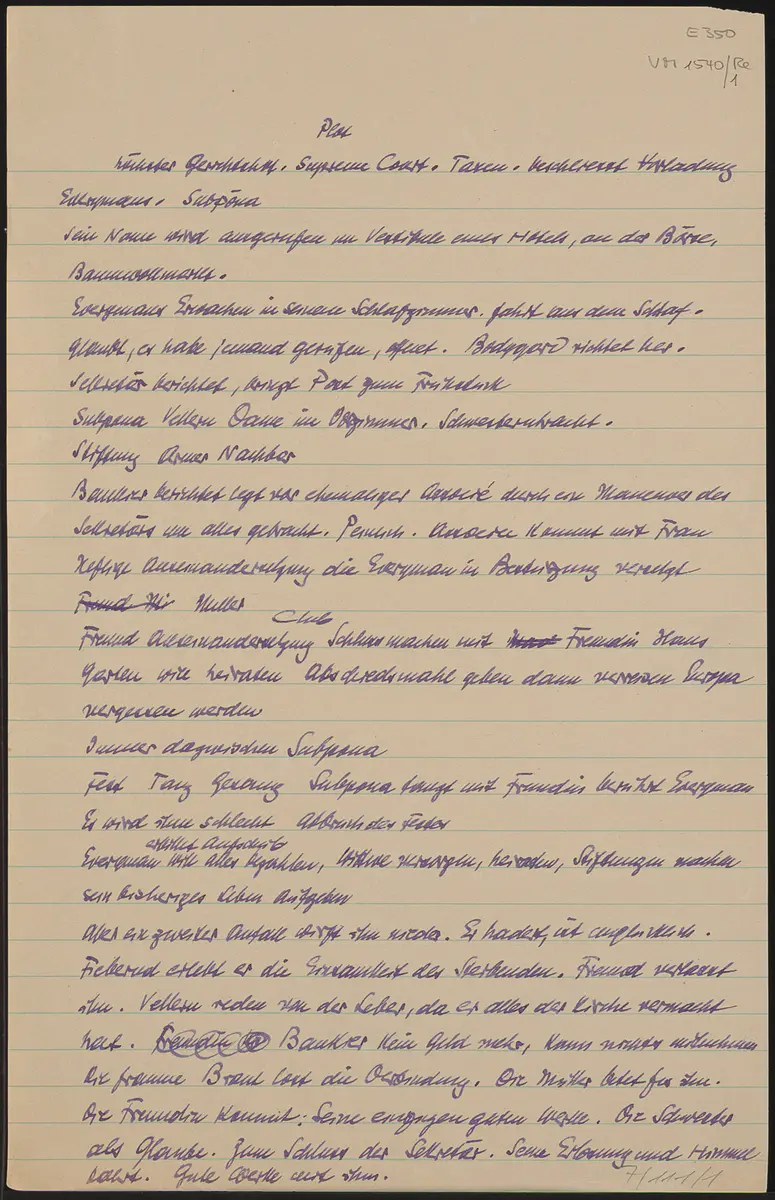 E 350
VM 1540/Re
1
Plot
höchster Gerichtshof. Supreme Court. Taxen. beschliesst Vorladung
Everymans. Subpöna
Sein Name wird ausgerufen im Vestibule eines Hotels, an der Börse,
Baumwollmarkt.
Everymans Erwachen in seinem Schlafzimmer. fährt aus dem Schlaf.
glaubt, es habe jemand gerufen, öffnet. Bodygard richtet her.
Sekretär berichtet, bringt Post zum Frühstück
Subpona Vettern Dame im Vorzimmer. Schwesterntracht.
Stiftung Armer Nachbar
Bankier berichtet legt vor ehemaliger Associé durch ein Manoever des
Sekretärs um alles gebracht. Peinlich. Associee kommt mit Frau
Heftige Auseinandersetzung die Everyman in Bestürzung versetzt
Freund Mutter
Club
Freund Auseinandersetzung Schluss machen mit Freundin Haus
Garten will heiraten Abschiedsmahl geben dann verreisen Europa
vergessen werden
Immer dazwischen Subpona
Fest Tanz Gesang Subpona tanzt mit Freundin berührt Everyman
Es wird ihm schlecht Abbruch des Festes
erbittet Aufschub
Everyman will alles bezahlen, Wittwe versorgen, heiraten, Stiftungen machen
sein bisheriges Leben aufgeben
Aber ein zweiter Anfall wirft ihn nieder. Er hadert, ist unglücklich.
Fiebernd erlebt er die Einsamkeit des Sterbenden. Freund verlässt
ihn. Vettern reden von der Leber, da er alles der Kirche vermacht
hat. Bankier kein Geld mehr, kann nichts mitnehmen
Die fromme Braut löst die Verbindung. Die Mutter betet für ihn.
Die Freundin kommt: Seine einzigen guten Werke. Die Schwester
als Glaube. Zum Schluss der Sekretär. Seine Erlösung und Himmel
fahrt. Gute Werke mit ihm.
7/111/1